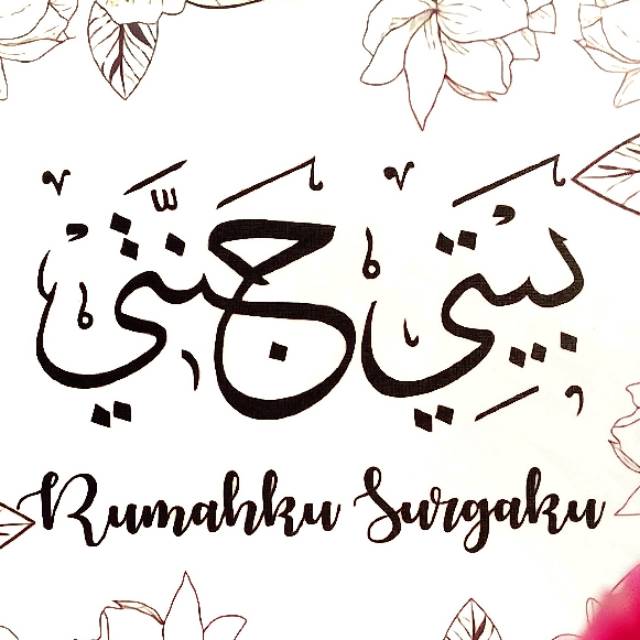 بَيْتِي جَنَّتِي
Rumahku Surgaku